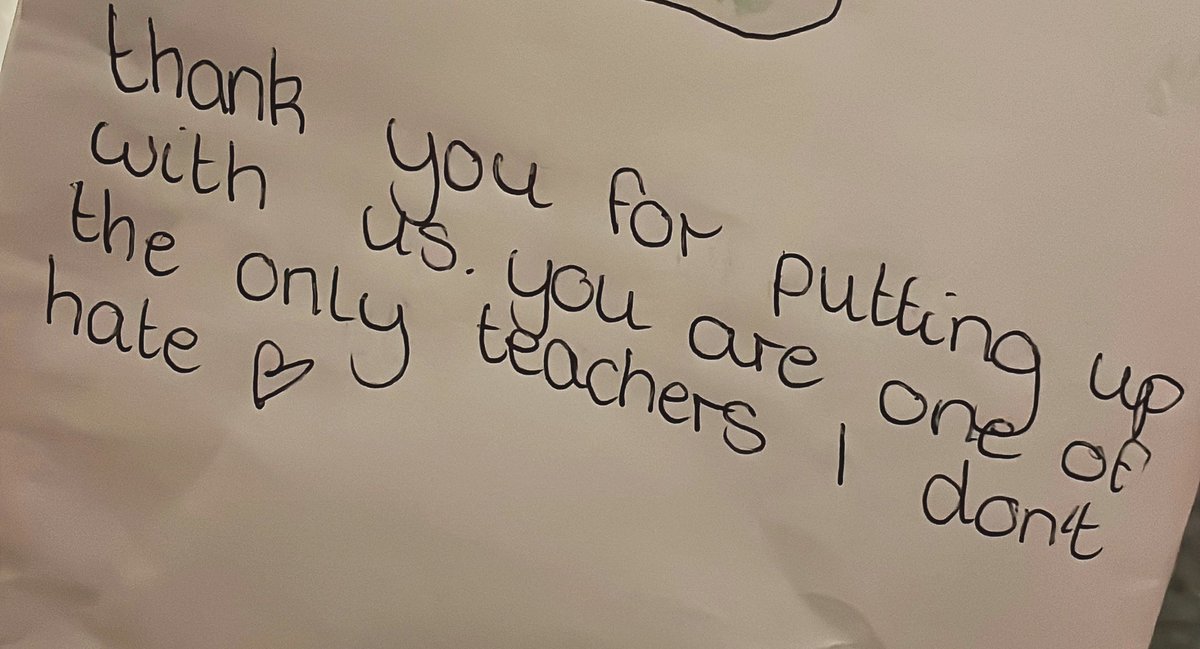 thank you for putting up
with us. you are one of
the only teachers I don't
hate